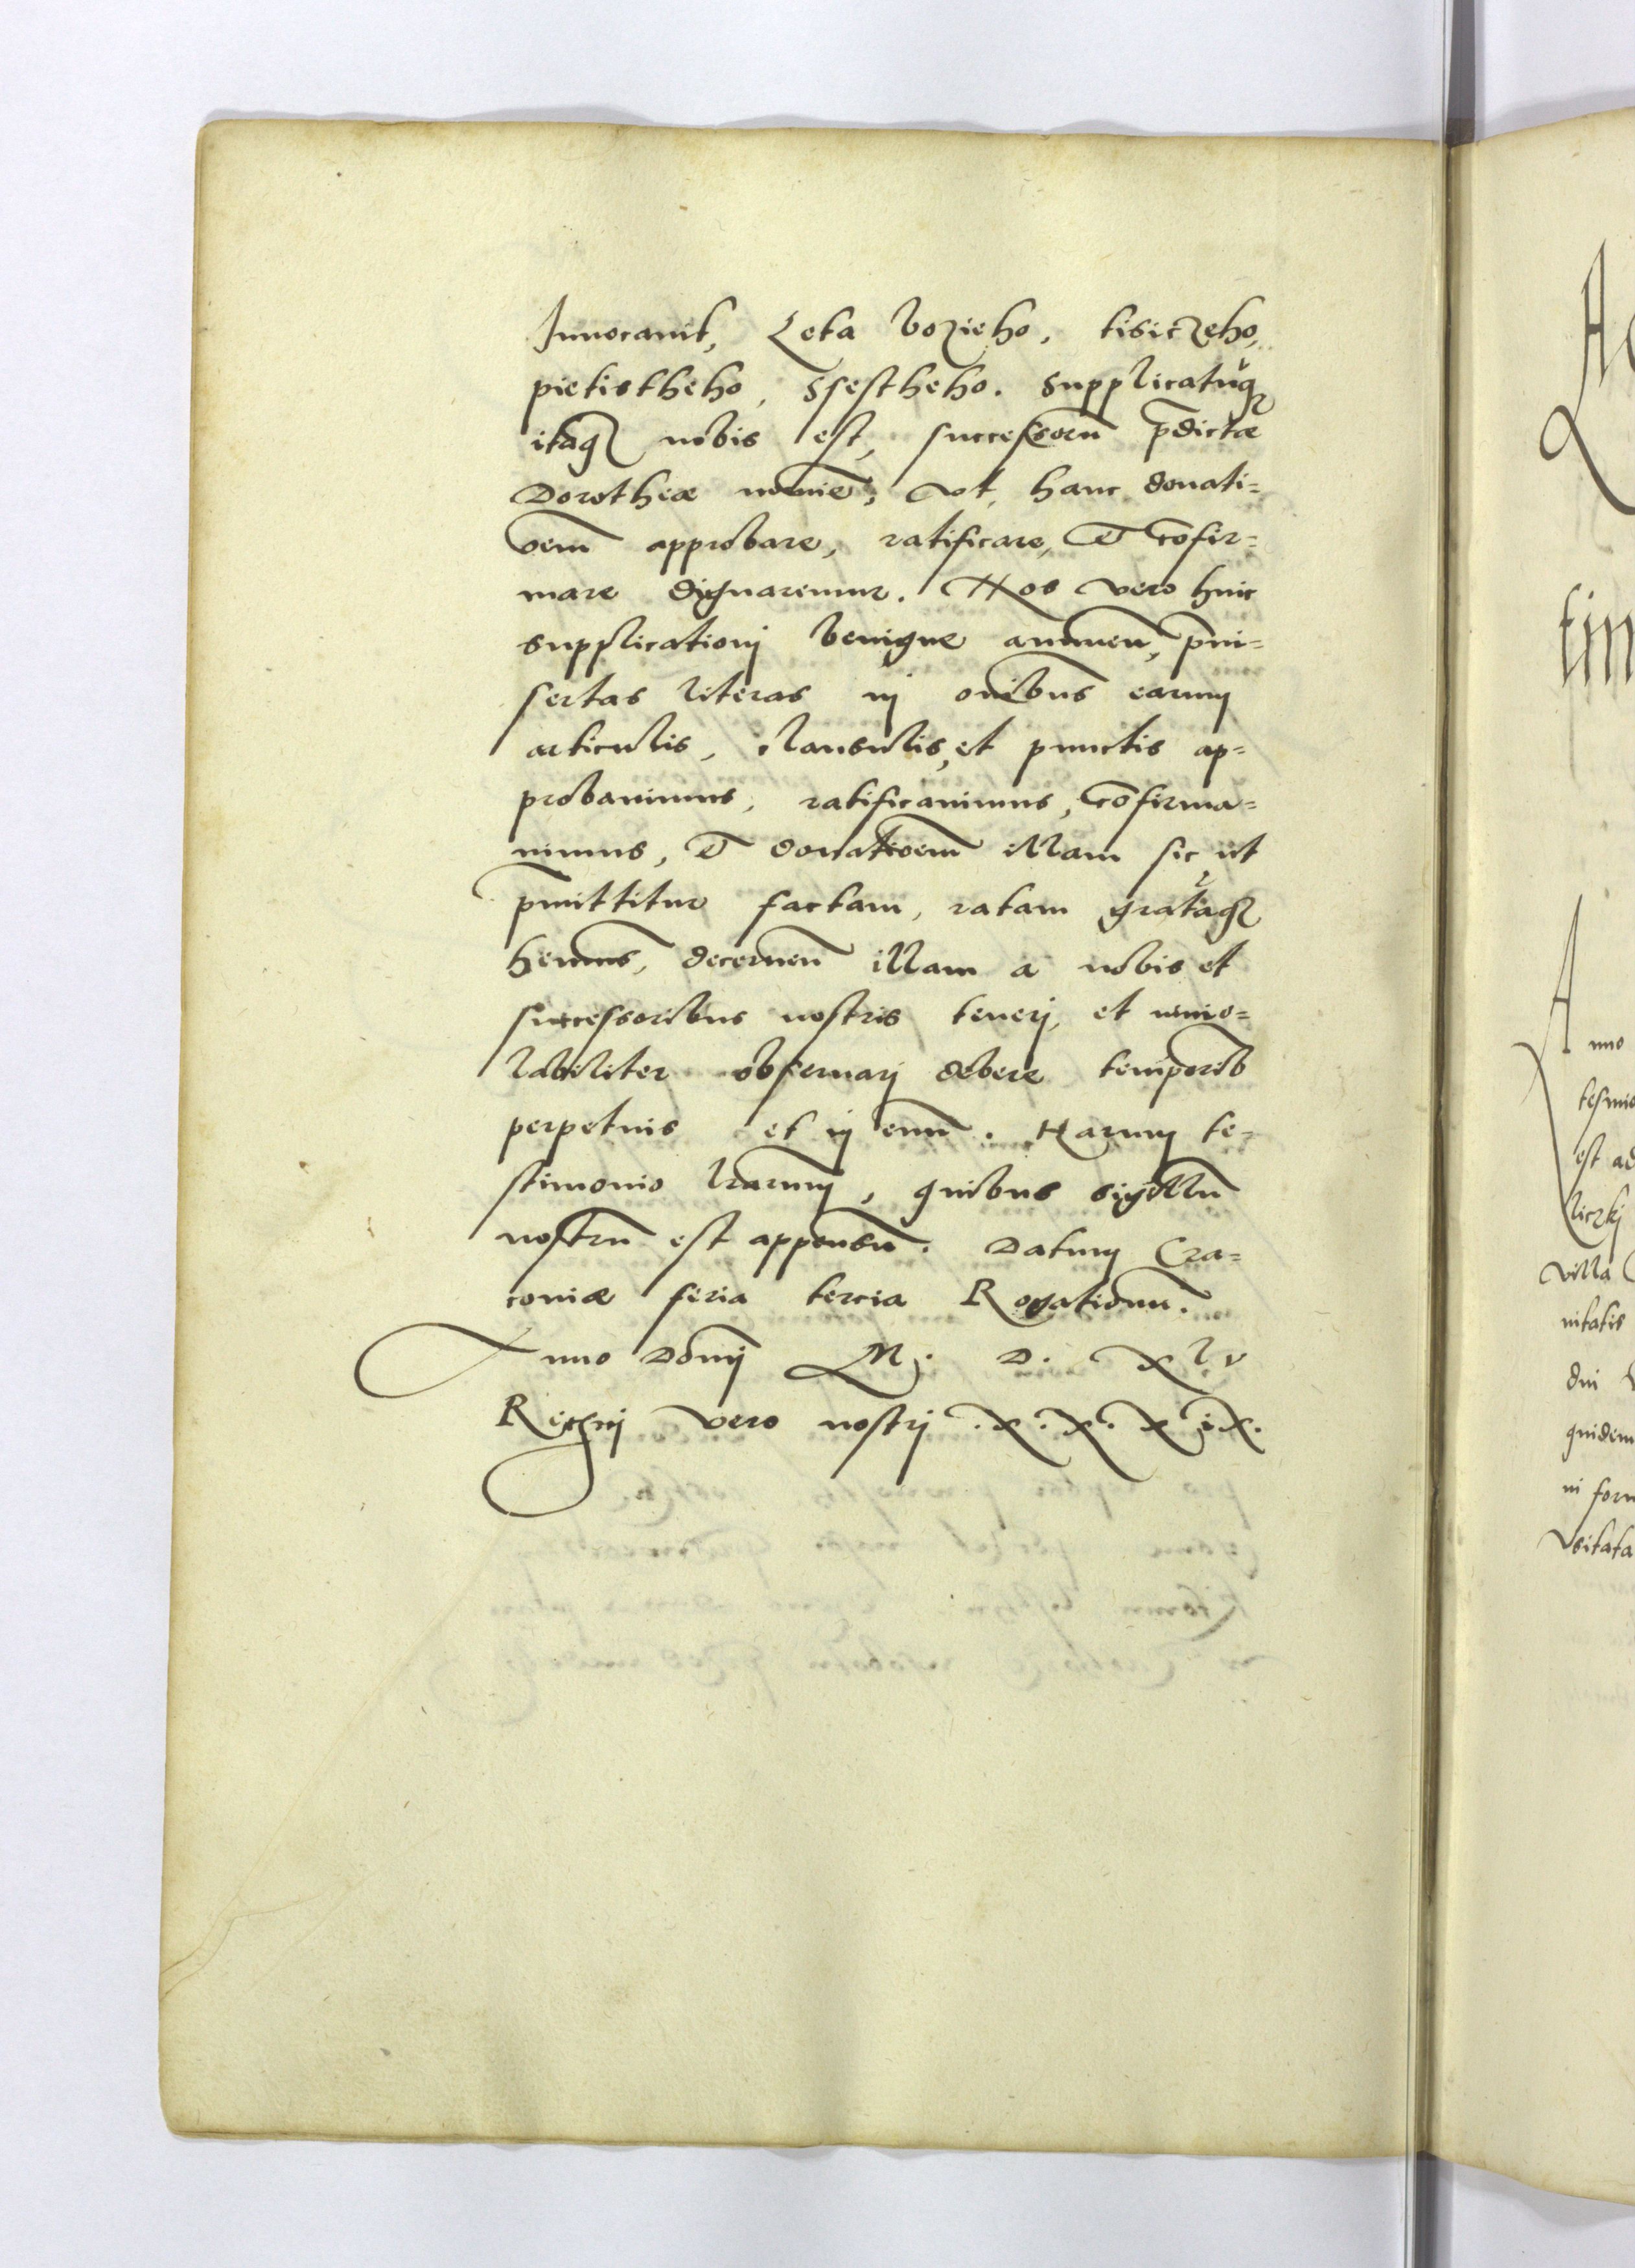 Innocauit, Leta bozieho, tisiczeho,
pietistheho, Ssestheho. Supplicatūq₃
itaq₃ nobis est, successorū p̄dictæ
Dorotheæ nomiē, vt, hanc donati=
oem̄ approbare, ratificare, et cōfir=
mare dignaremur. Nos vero huic
supplicationj benigne annuen̄, p̄in=
sertas literas in om̄ibus earum
articulis, clausulis, et punctis ap=
probauimus, ratificauimus, cōfirma=
uimus, et donatioem̄ illam sic ut
p̄mittitur factam, ratam gratāq₃
hēmus, decernen̄ illam a nobis et
successoribus nostris tenerj, et inuio=
labiliter obseruarj debere temporib̄
perpetuis et in euū. Harum te=
stimonio l̄rarum, quibus sigillū
nostrū est appensū. Datum Cra=
couiæ feria tercia Rogationū.
Anno Dōnj M. D. xlv
Regnj vero nostrj .x.x.x ix.
A
L
tin
Anno
est ad
liczkj
villa
nitatis
dni
quidem
in form
vsitata